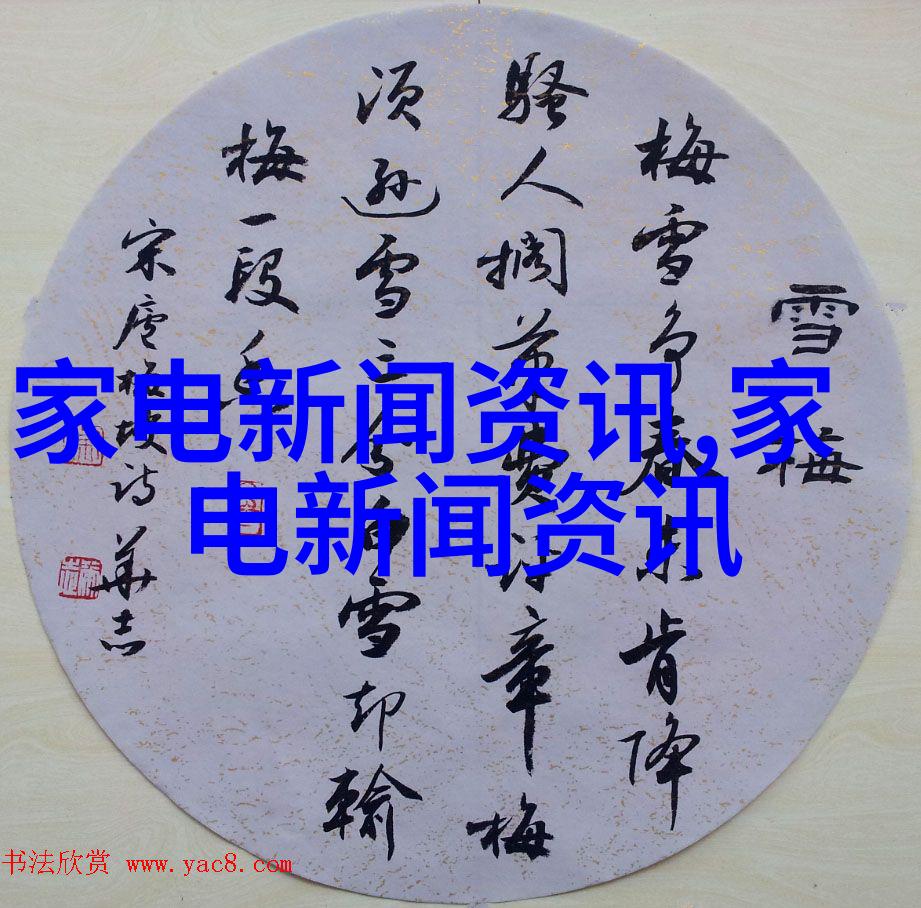 雪梅
梅雪争春未肯降
骚人搁笔费评章梅
须逊雪三分白雪却輸
梅一段香
宋卢梅坡诗 華志
家电新闻资讯,家
电新闻资讯
书法欣赏 www.yac8.com